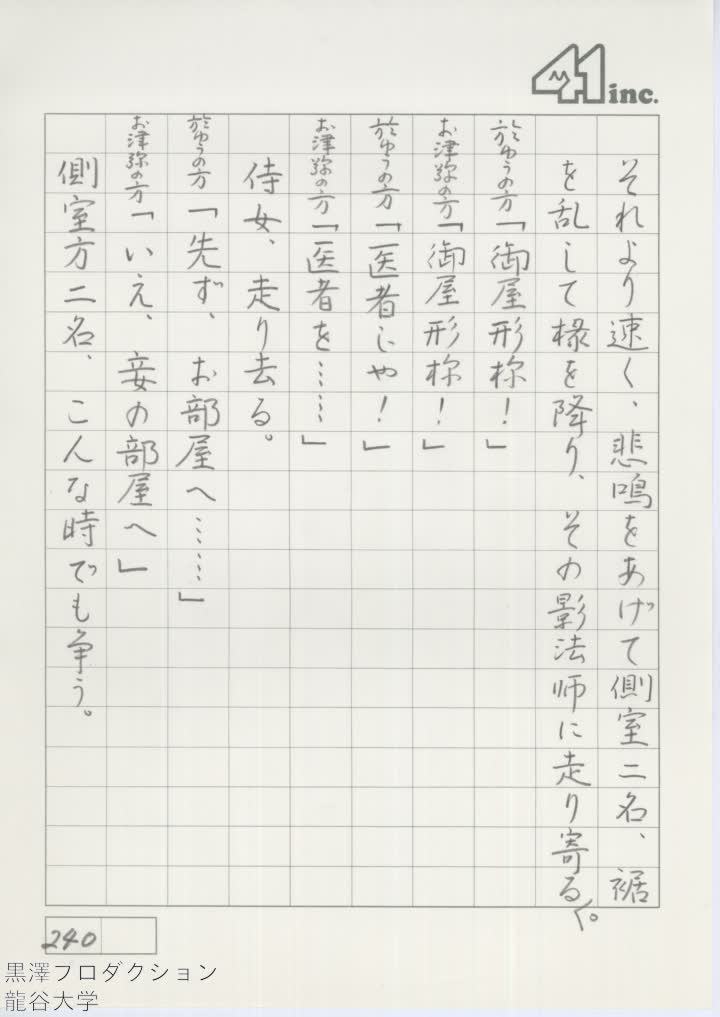 41 inc.
それより速く、悲鳴をあげて側室二名、裾
を乱して椽を降り、その影法師に走り寄る。
於ゆうの方「御屋形様！」
お津弥の方「御屋形様！」
於ゆうの方「医者じゃ！」
お津弥の方「医者を……」
侍女、走り去る。
於ゆうの方「先ず、お部屋へ……」
お津弥の方「いえ、妾の部屋へ」
側室方二名、こんな時でも争う。
240
黒澤プロダクション
龍谷大学